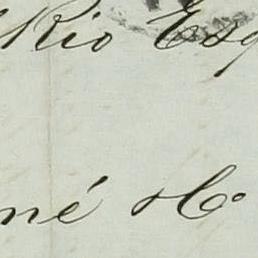 Rio Esq
né &Co